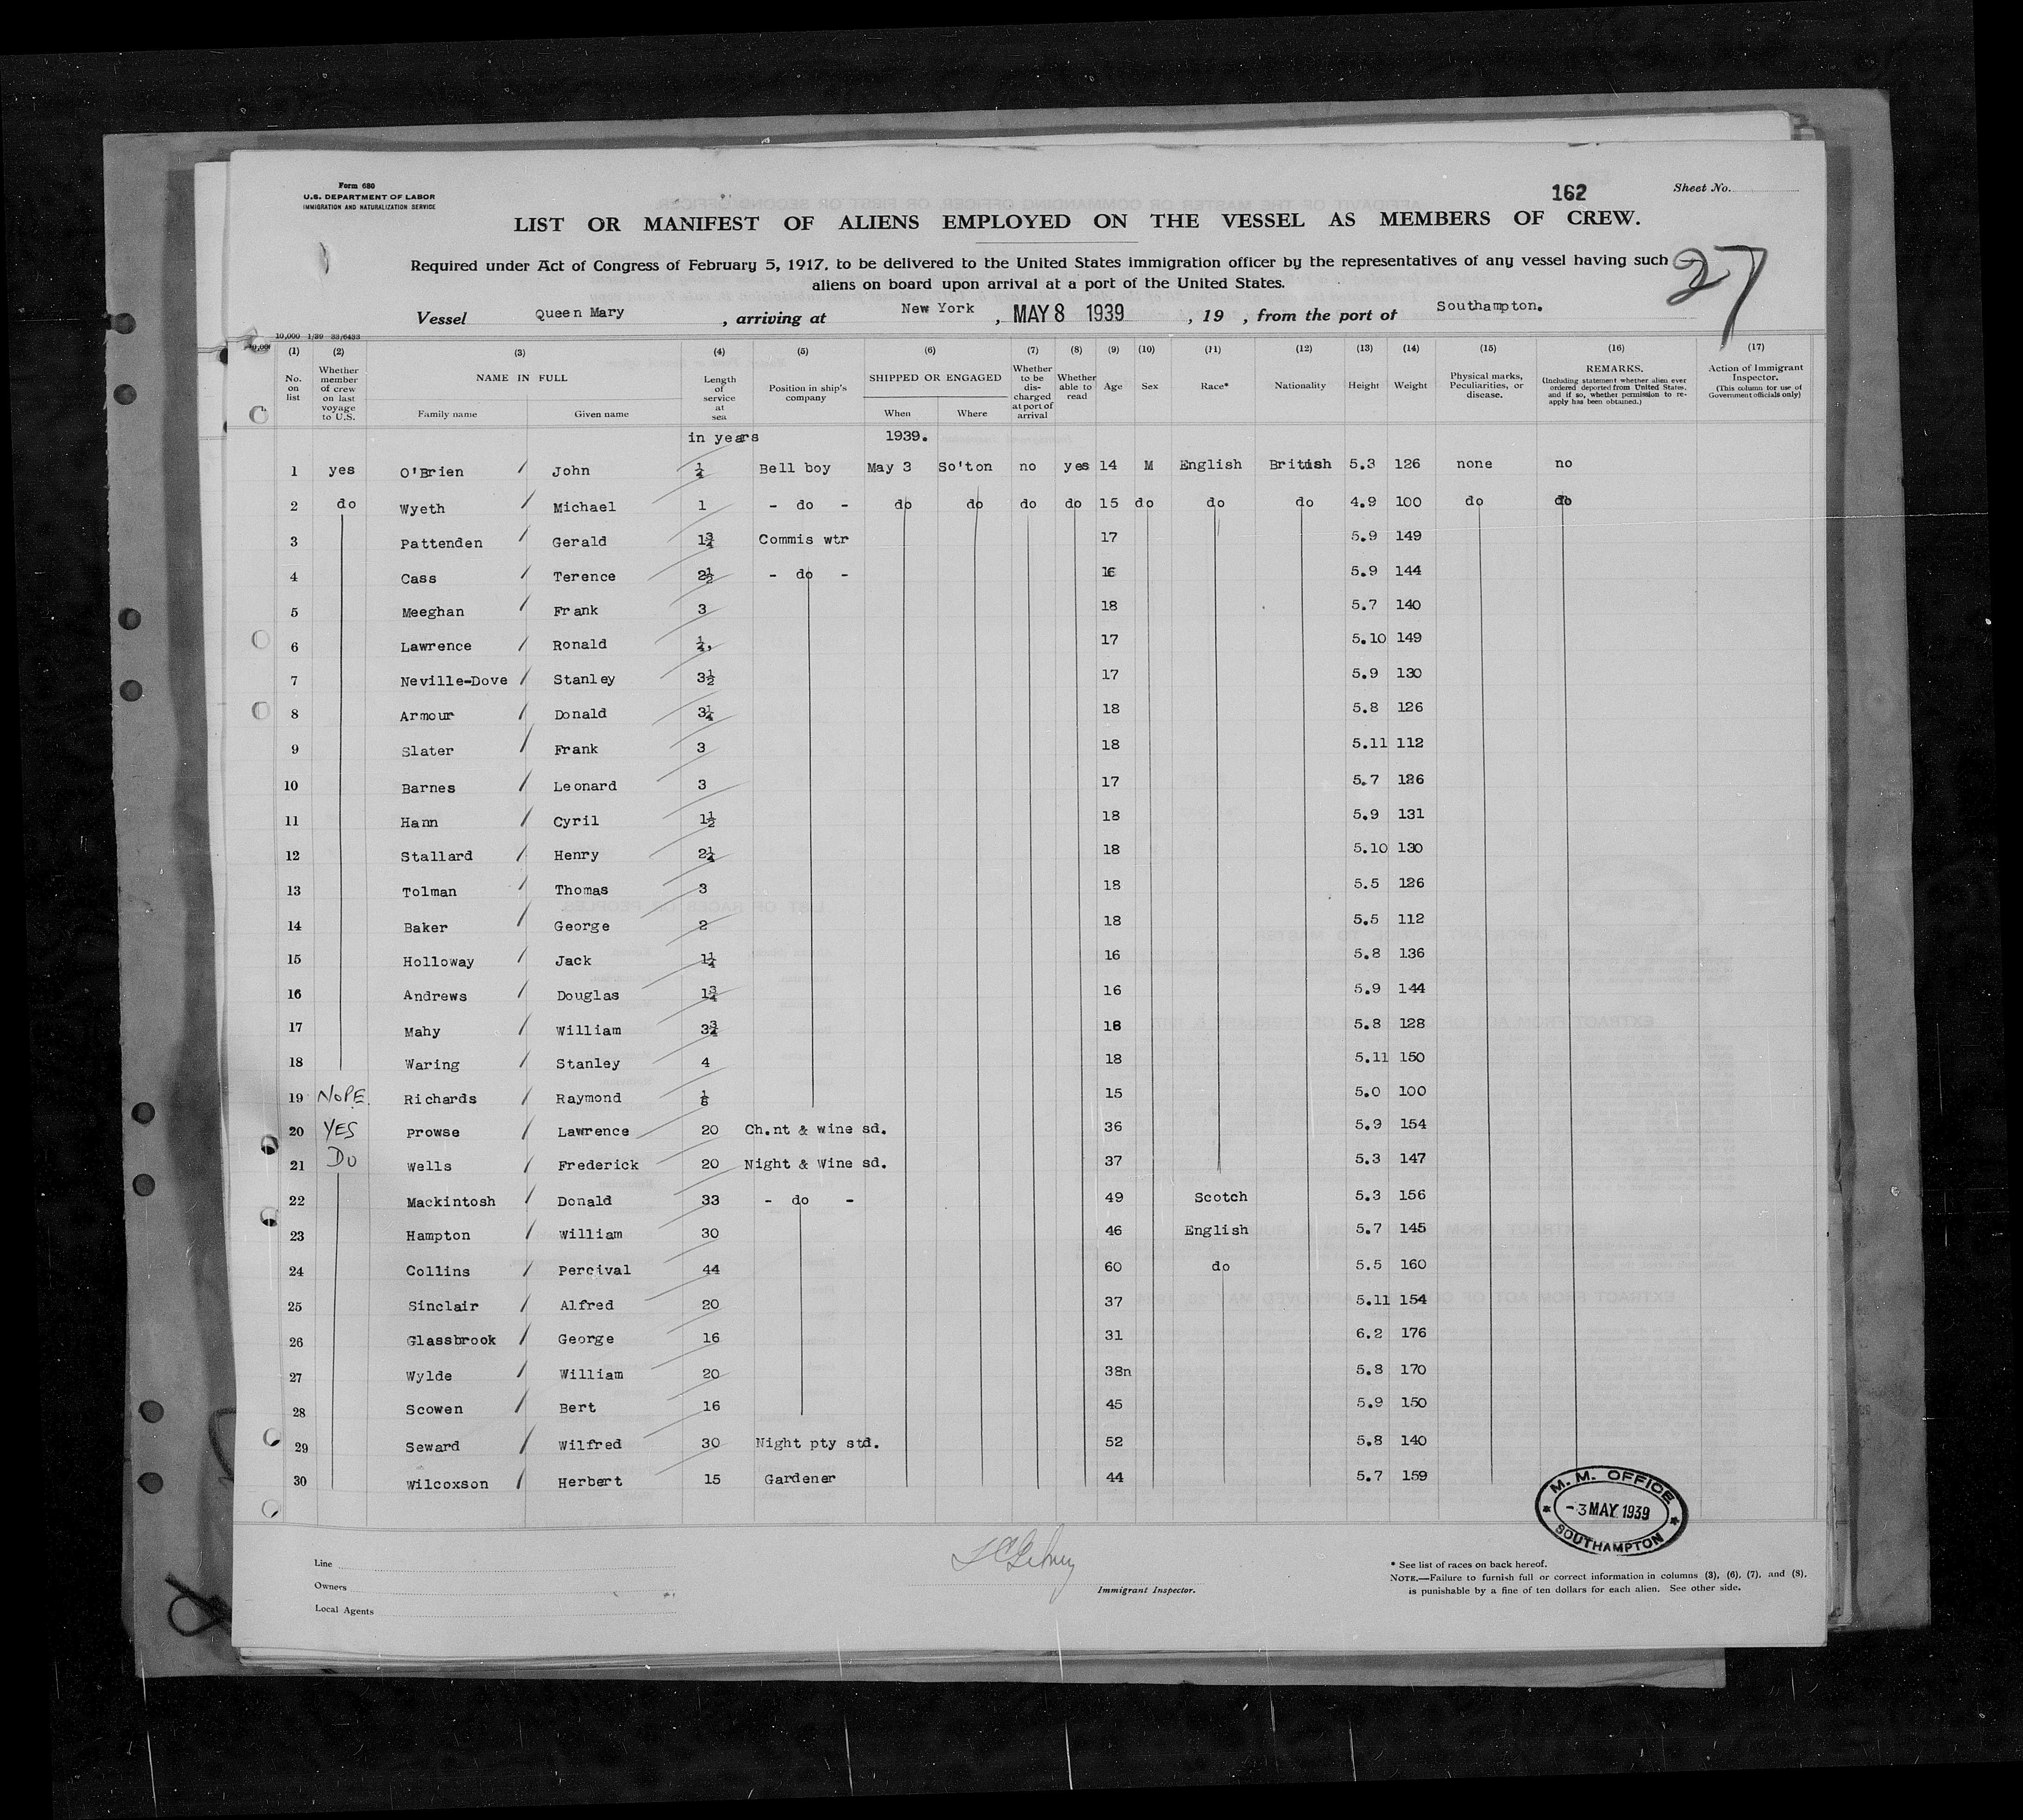 Form 680
U.S. DEPARTMENT OF LABOR
IMMIGRATION AND NATURALIZATION SERVICE
162
Sheet No.
LIST OR MANIFEST OF ALIENS EMPLOYED ON THE VESSEL AS MEMBERS OF CREW.
27
Required under Act of Congress of February 5, 1917, to be delivered to the United States immigration officer by the representatives of any vessel having such
aliens on board upon arrival at a port of the United States.
Vessel Queen Mary , arriving at New York , MAY 8 1939 , 19 , from the port of Southampton.
10,000 1/39 33/6433
(1) (2) (3) (4) (5) (6) (7) (8) (9) (10) (11) (12) (13) (14) (15) (16) (17)
No. on list Whether member of crew on last voyage to U.S. NAME IN FULL Family name Given name Length of service at sea Position in ship's company SHIPPED OR ENGAGED When Where Whether to be discharged at port of arrival Whether able to read Age Sex Race* Nationality Height Weight Physical marks, Peculiarities, or disease. REMARKS. (Including statement whether alien ever ordered deported from United States, and if so, whether permission to re-apply has been obtained.) Action of Immigrant Inspector. (This column for use of Government officials only)
in years 1939.
1 yes O'Brien John 1/4 Bell boy May 3 So'ton no yes 14 M English British 5.3 126 none no
2 do Wyeth Michael 1 - do - do do do do 15 do do do 4.9 100 do do
3 Pattenden Gerald 1 3/4 Commis wtr 17 5.9 149
4 Cass Terence 2 1/2 - do - 16 5.9 144
5 Meeghan Frank 3 18 5.7 140
6 Lawrence Ronald 1/4, 17 5.10 149
7 Neville-Dove Stanley 3 1/2 17 5.9 130
8 Armour Donald 3 1/4 18 5.8 126
9 Slater Frank 3 18 5.11 112
10 Barnes Leonard 3 17 5.7 126
11 Hann Cyril 1 1/2 18 5.9 131
12 Stallard Henry 2 1/4 18 5.10 130
13 Tolman Thomas 3 18 5.5 126
14 Baker George 2 18 5.5 112
15 Holloway Jack 1 1/4 16 5.8 136
16 Andrews Douglas 1 3/4 16 5.9 144
17 Mahy William 3 3/4 18 5.8 128
18 Waring Stanley 4 18 5.11 150
19 NOPE. Richards Raymond 1/8 15 5.0 100
20 YES Prowse Lawrence 20 Ch.nt & wine sd. 36 5.9 154
21 DO Wells Frederick 20 Night & wine sd. 37 5.3 147
22 Mackintosh Donald 33 - do - 49 Scotch 5.3 156
23 Hampton William 30 46 English 5.7 145
24 Collins Percival 44 60 do 5.5 160
25 Sinclair Alfred 20 37 5.11 154
26 Glassbrook George 16 31 6.2 176
27 Wylde William 20 38n 5.8 170
28 Scowen Bert 16 45 5.9 150
29 Seward Wilfred 30 Night pty std. 52 5.8 140
30 Wilcoxson Herbert 15 Gardener 44 5.7 159
M. M. OFFICE
- 3 MAY 1939
SOUTHAMPTON
Line
Owners
Local Agents
Immigrant Inspector.
* See list of races on back hereof.
NOTE.—Failure to furnish full or correct information in columns (3), (6), (7), and (8),
is punishable by a fine of ten dollars for each alien. See other side.